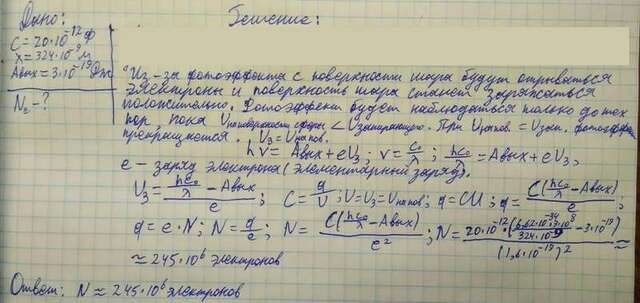 Дано:
Решение:
C = 20·10⁻¹² Ф
λ = 324·10⁻⁹ м
Aвых = 3·10⁻¹⁹ Дж
Nэ - ?
Из-за фотоэффекта с поверхности шара будут отрываться
электроны и поверхность шара станет заряжаться
положительно. Фотоэффект будет наблюдаться только до тех
пор, пока Uповерхности сферы < Uзапирающего. При Uпов. = Uзап. фотоэфф.
прекращается. Uз = Uпов.
hν = Aвых + eUз; ν = c₀/λ; hc₀/λ = Aвых + eUз,
e – заряд электрона (элементарный заряд).
Uз = (hc₀/λ - Aвых)/e; C = q/U; U = Uз = Uпов; q = CU; q = C(hc₀/λ - Aвых)/e;
q = e·N; N = q/e; N = C(hc₀/λ - Aвых)/e²; N = 20·10⁻¹²·(6,62·10⁻³⁴·3·10⁸/324·10⁻⁹ - 3·10⁻¹⁹)/(1,6·10⁻¹⁹)² ≈
≈ 245·10⁶ электронов
Ответ: N ≈ 245·10⁶ электронов